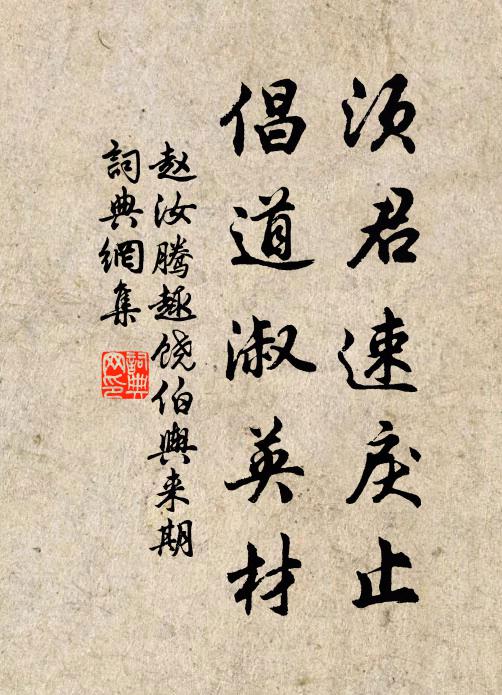 须君速戾止
倡道淑英材
赵汝腾趣饶伯舆来期
詞典網集
詞典網印